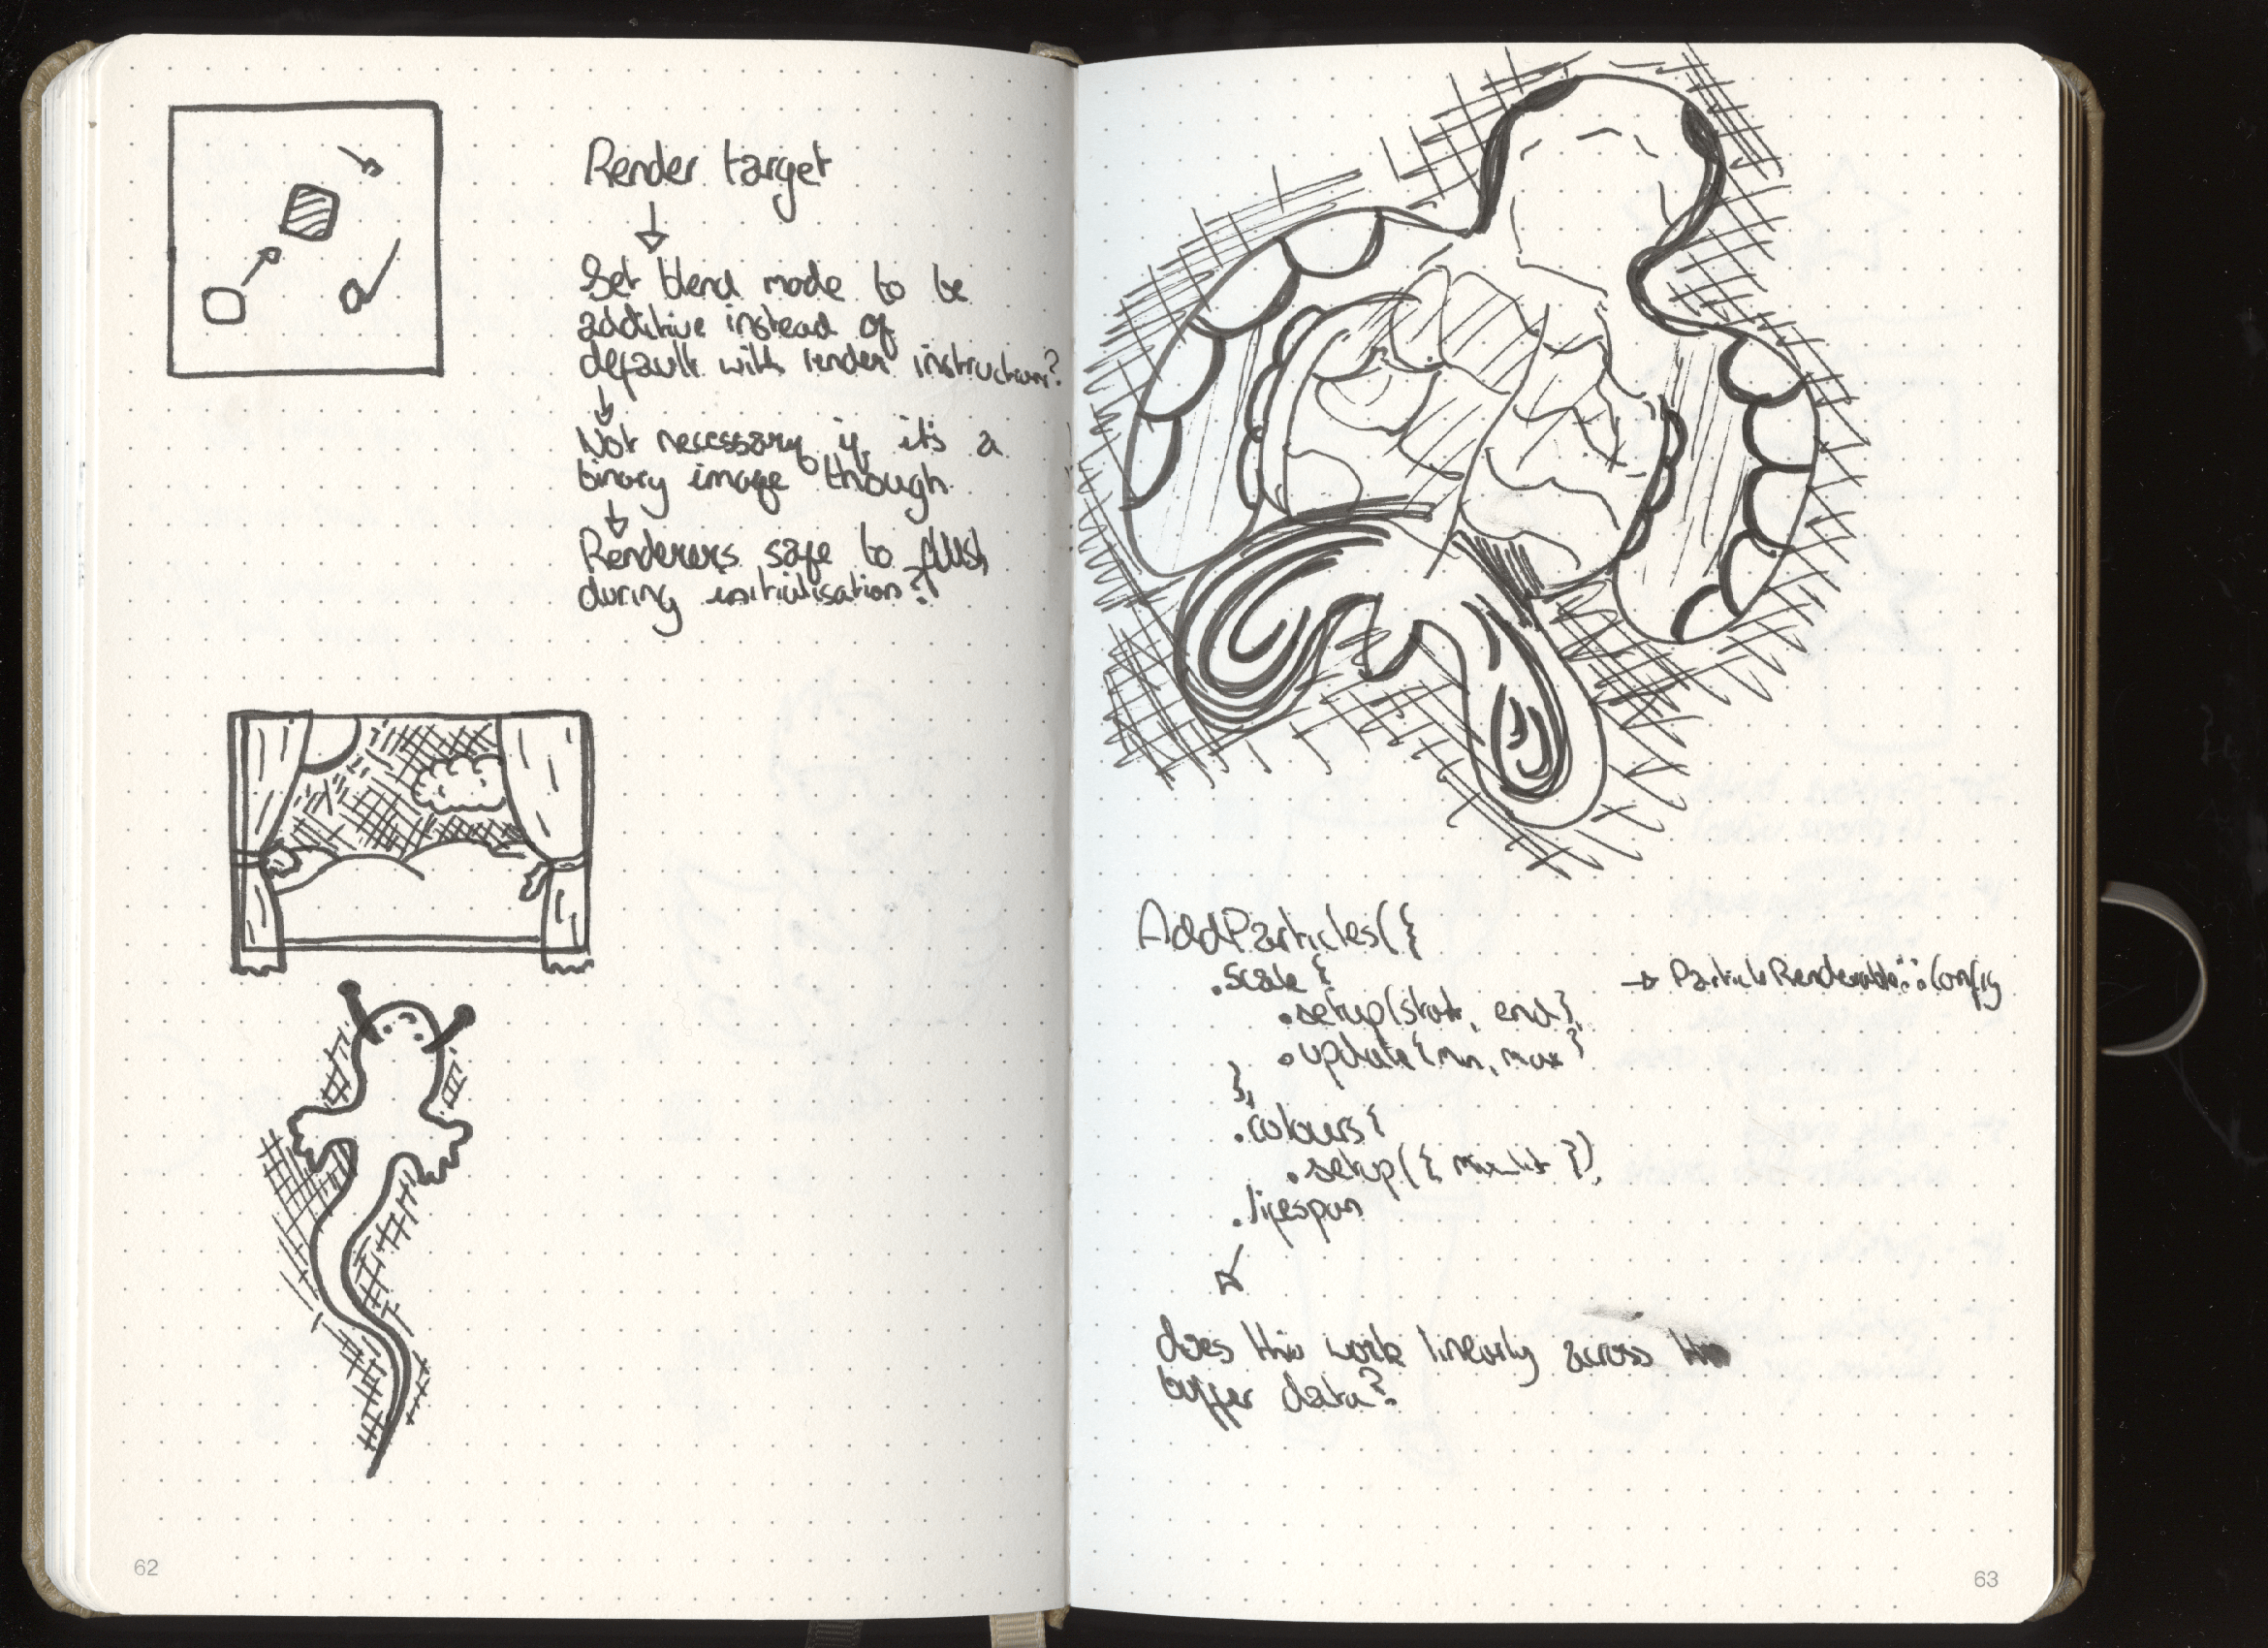 Render target
Set blend mode to be
additive instead of
default with render instruction?
Not necessary if it's a
binary image though
Renderers safe to flush
during initialisation?
62
AddParticles({
.scale {
→ ParticleRenderable::Config
.setup(start, end),
.update{min, max}
},
.colours{
.setup({ }),
.lifespan
does this work linearly across the
buffer data?
63